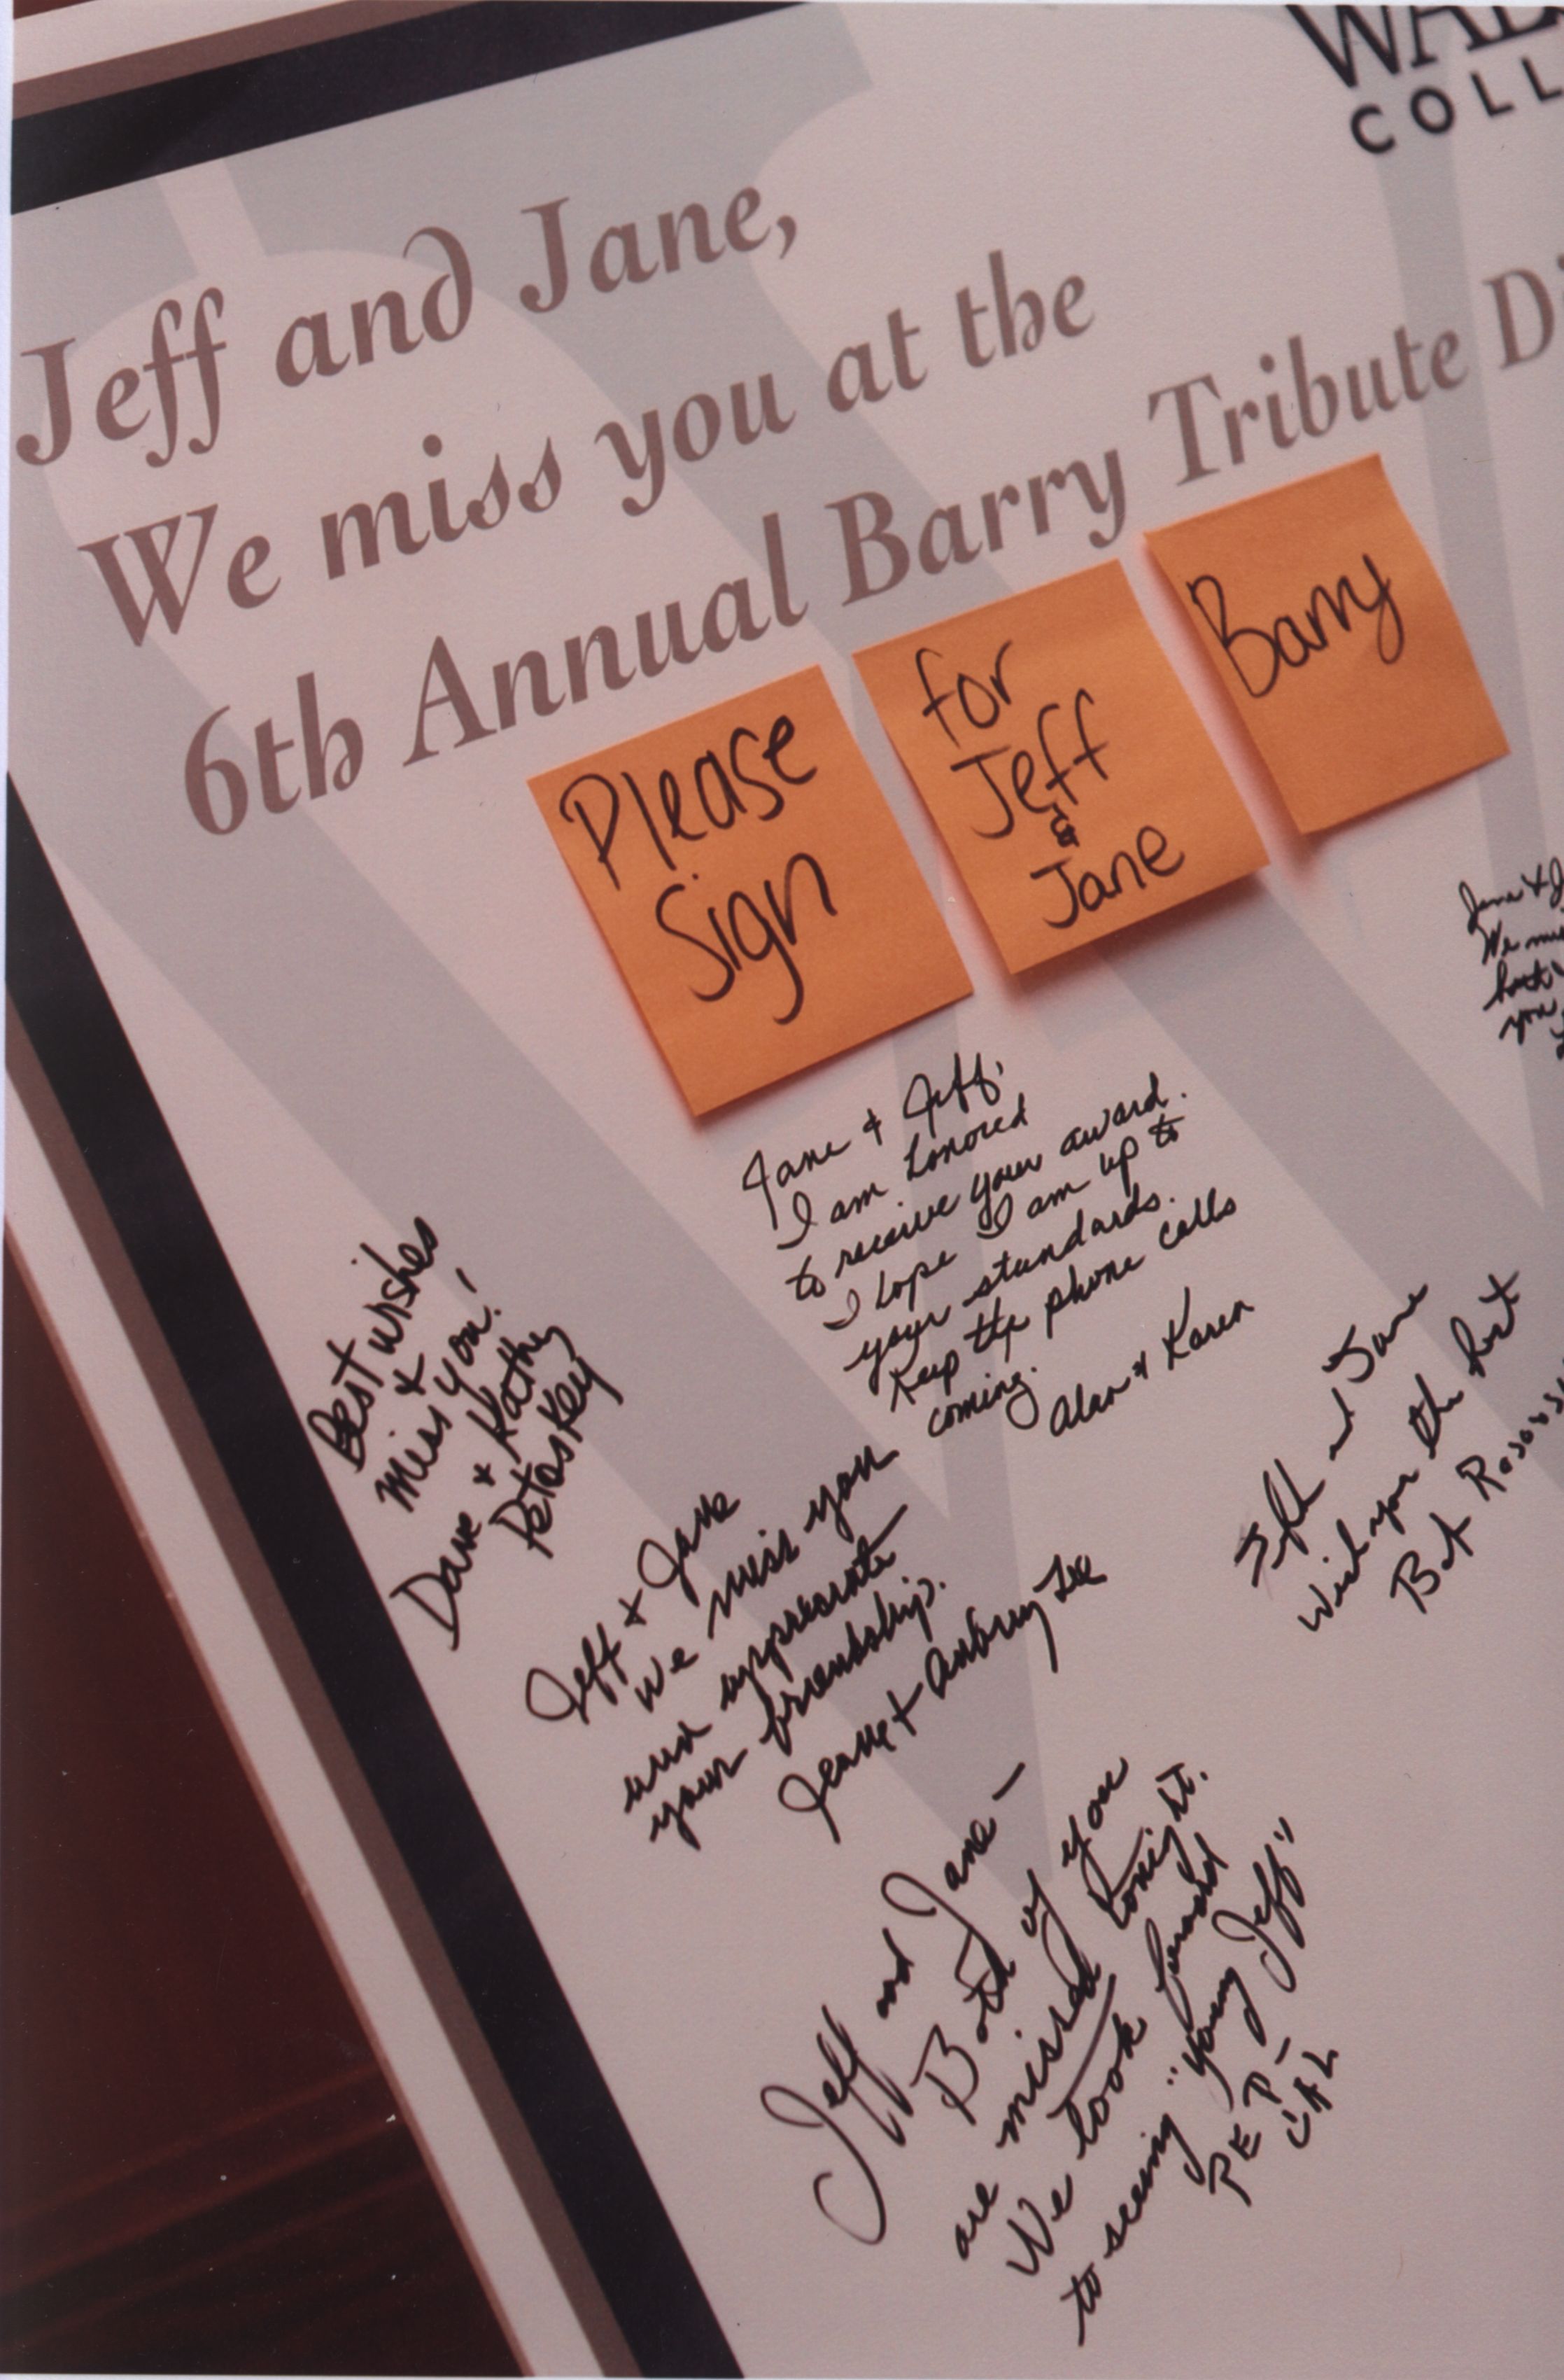 WAL
COLL
Jeff and Jane,
We miss you at the
6th Annual Barry Tribute Di
Please
Sign
for
Jeff
&
Jane
Barry
Jane & J
We mi
both
you
Jane & Jeff,
I am honored
to receive your award.
I hope I am up to
your standards.
Keep the phone calls
coming.
Alan & Karen
Best wishes
&
miss you!
Dave & Kathy
Petoskey
Jeff & Jane
We miss you
and appreciate
your friendship.
Jeanne & Aubrey Lee
Jeff and Jane
Wish you the best
But
Jeff and Jane –
Both of you
are missed tonight.
We look forward
to seeing "young Jeff"